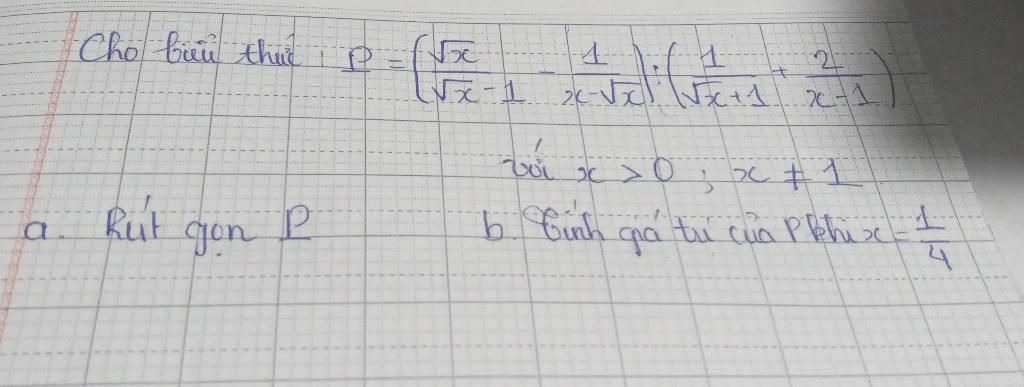 Cho biểu thức : P = (√x/(√x-1) - 1/(x-√x)) : (1/(√x+1) + 2/(x-1))
với x > 0 ; x ≠ 1
a. Rút gọn P b. Tính giá trị của P khi x = 1/4